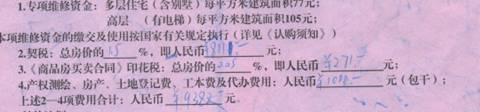 1.专项维修资金：多层住宅（含别墅）每平方米建筑面积77元；
高层 （有电梯）每平方米建筑面积105元；
本项维修资金的缴交及使用按国家有关规定执行（详见《认购须知》）
2.契税：总房价的1.5%，即人民币 元；
3.《商品房买卖合同》印花税：总房价的0.05%，即人民币￥271元；
4.产权测绘、房产、土地登记费、工本费及代办费用：人民币 元（包干）；
上述2—4项费用合计：人民币￥9382元。